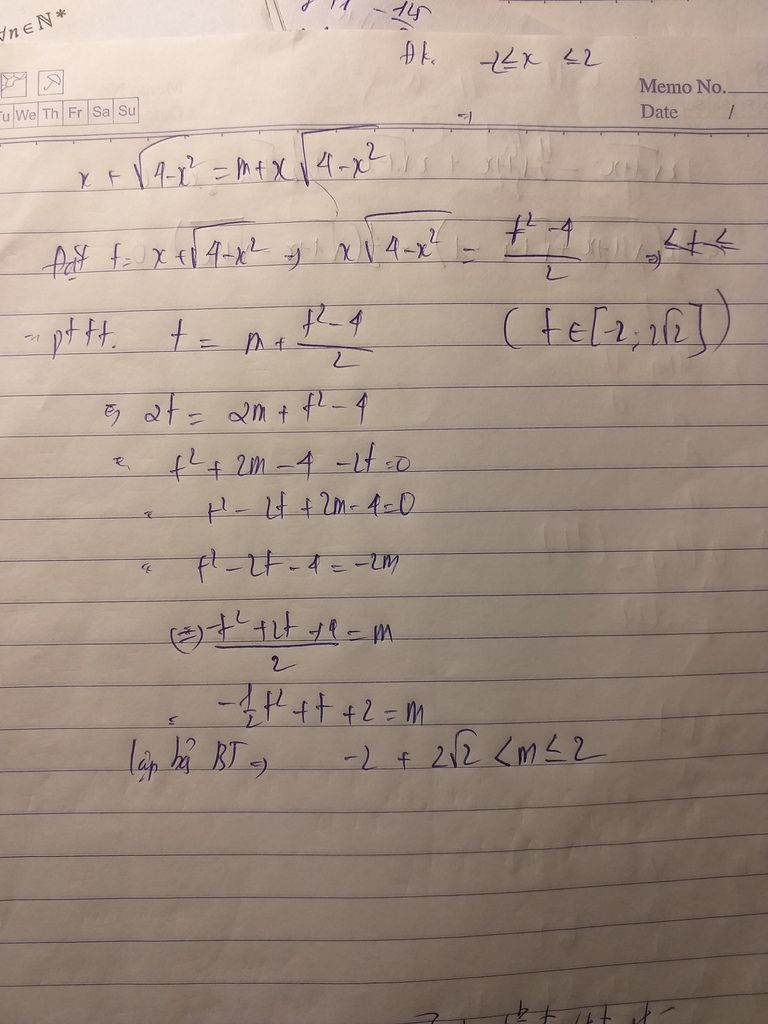 ∀n∈N*
-145
Đk. -2≤x ≤2
Memo No.
Tu We Th Fr Sa Su
Date /
=)
x + √4-x² = m+x √4-x²
Đặt t= x+√4-x² =) x√4-x² = t²-4/2 =) ≤t≤
pttt. t = m + t²-4/2 (t∈[-2;2√2])
2t = 2m + t² - 4
t² + 2m - 4 - 2t=0
t² - 2t + 2m - 4=0
t² - 2t - 4 = -2m
(=) -t² +2t +4/2 = m
-1/2t² + t + 2 = m
lập bả BT =) -2 + 2√2 <m≤2